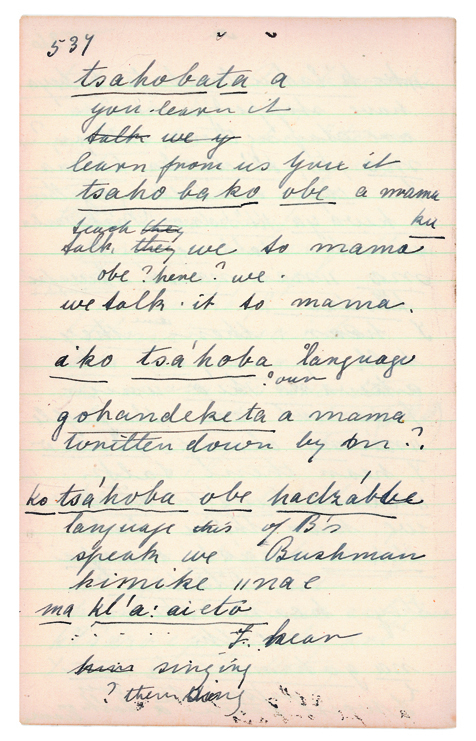 537
tsahobata a
you learn it
talk we y
learn from us you it
tsaho bako obe a mama
ku
teach they
talk they we to mama
obe? here? we.
we talk it to mama.
áko tsáhoba language
our
gohandeketa a mama
written down by ??
ko tsáhoba obe hadzábbe
language this of B's
speak we Bushman
himike "nae
ma kl'a: aieta
I hear
him singing
? them